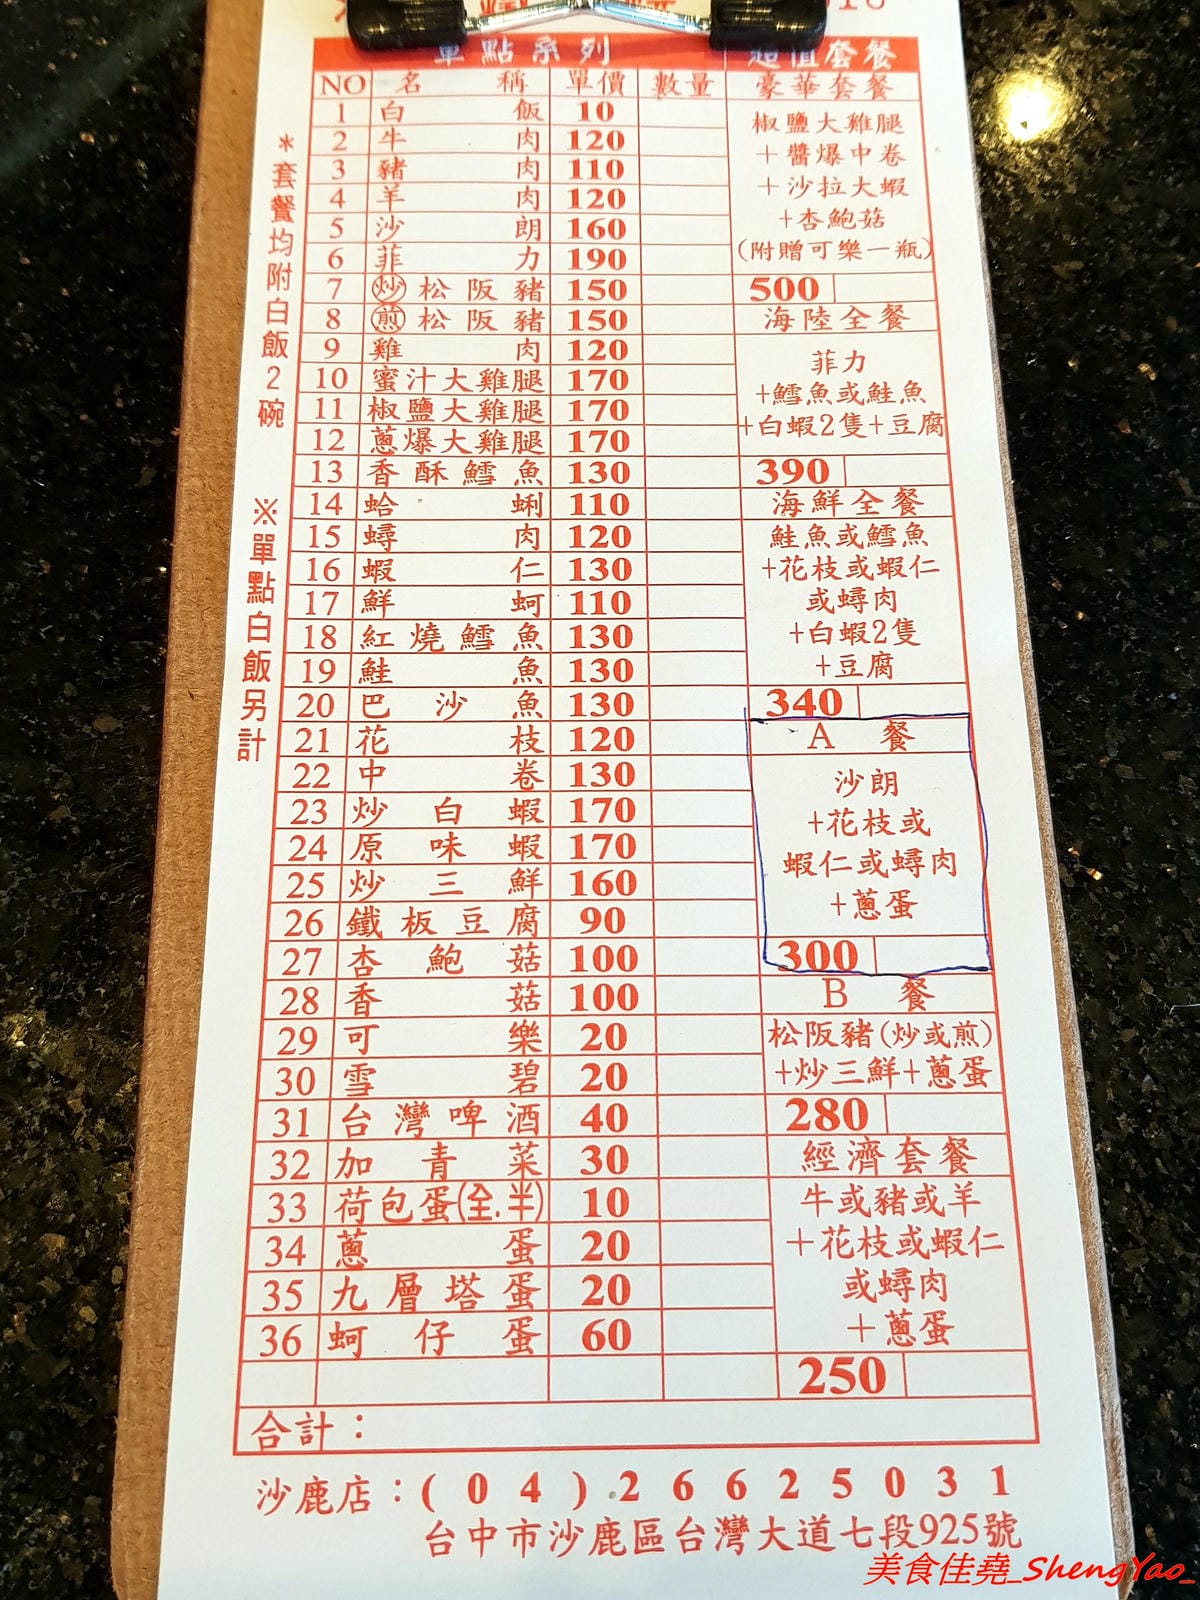 單點系列
NO 名稱 單價 數量
1 白飯 10
2 牛肉 120
3 豬肉 110
4 羊肉 120
5 沙朗 160
6 菲力 190
7 炒松阪豬 150
8 煎松阪豬 150
9 雞肉 120
10 蜜汁大雞腿 170
11 椒鹽大雞腿 170
12 蔥爆大雞腿 170
13 香酥鱈魚 130
14 蛤蜊 110
15 蟳肉 120
16 蝦仁 130
17 鮮蚵 110
18 紅燒鱈魚 130
19 鮭魚 130
20 巴沙魚 130
21 花枝 120
22 中卷 130
23 炒白蝦 170
24 原味蝦 170
25 炒三鮮 160
26 鐵板豆腐 90
27 杏鮑菇 100
28 香菇 100
29 可樂 20
30 雪碧 20
31 台灣啤酒 40
32 加青菜 30
33 荷包蛋(全.半) 10
34 蔥蛋 20
35 九層塔蛋 20
36 蚵仔蛋 60
超值套餐
豪華套餐
椒鹽大雞腿
+醬爆中卷
+沙拉大蝦
+杏鮑菇
(附贈可樂一瓶)
500
海陸全餐
菲力
+鱈魚或鮭魚
+白蝦2隻+豆腐
390
海鮮全餐
鮭魚或鱈魚
+花枝或蝦仁
或蟳肉
+白蝦2隻
+豆腐
340
A 餐
沙朗
+花枝或
蝦仁或蟳肉
+蔥蛋
300
B 餐
松阪豬(炒或煎)
+炒三鮮+蔥蛋
280
經濟套餐
牛或豬或羊
+花枝或蝦仁
或蟳肉
+蔥蛋
250
合計：
*套餐均附白飯2碗
※單點白飯另計
沙鹿店：(04)26625031
台中市沙鹿區台灣大道七段925號
美食佳堯_ShengYao_